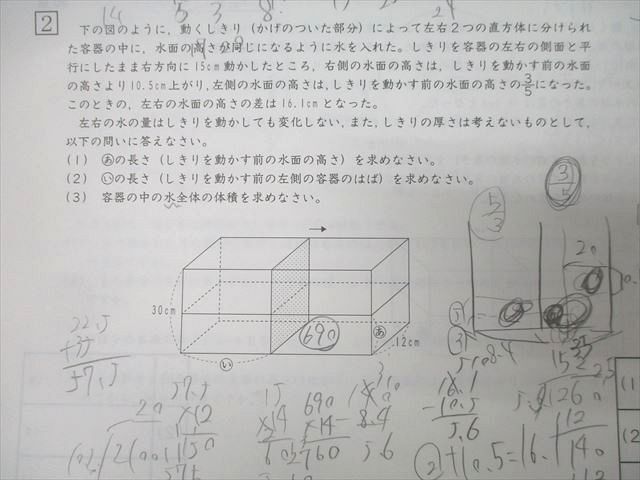 2
下の図のように，動くしきり（かげのついた部分）によって左右2つの直方体に分けられ
た容器の中に，水面の高さが同じになるように水を入れた。しきりを容器の左右の側面と平
行にしたまま右方向に15cm動かしたところ，右側の水面の高さは，しきりを動かす前の水面
の高さより10.5cm上がり，左側の水面の高さは，しきりを動かす前の水面の高さの3/5になった。
このときの，左右の水面の高さの差は16.1cmとなった。
左右の水の量はしきりを動かしても変化しない，また，しきりの厚さは考えないものとして，
以下の問いに答えなさい。
(1) あの長さ（しきりを動かす前の水面の高さ）を求めなさい。
(2) いの長さ（しきりを動かす前の左側の容器のはば）を求めなさい。
(3) 容器の中の水全体の体積を求めなさい。
3/5
5/3
20
30cm
690
あ
12cm
い
5
3
22.5
+35
57.5
8.4
16.1
-10.5
5.6
690
×14
2760
15
×14
60
8.4
5.6
57.5
×12
1150
20
1260
112
140
2.5
+10.5=16.1
(1)
(2)